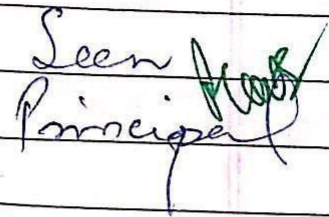 Seen
Principal